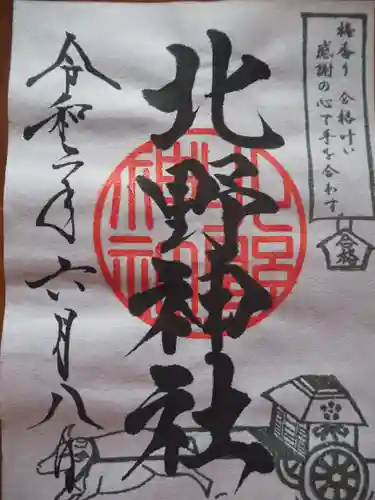 梅香り 合格叶い
感謝の心で手を合わす
合格
北野神社
北野神社
令和二年 六月八日